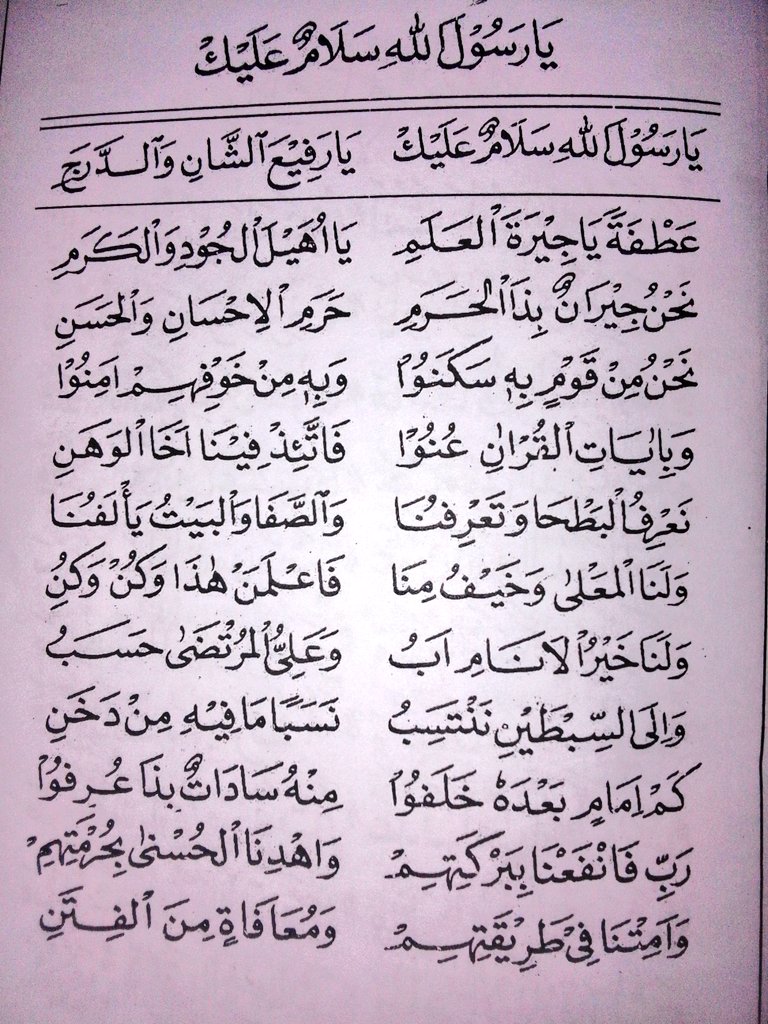 يَارَسُوْلَ اللهِ سَلَامٌ عَلَيْكَ
يَارَسُوْلَ اللهِ سَلَامٌ عَلَيْكْ يَارَفِيْعَ الشَّانِ وَالدَّرَجِ
عَطْفَةً يَاجِيْرَةَ الْعَلَمِ يَا اُهَيْلَ الْجُوْدِ وَالْكَرَمِ
نَحْنُ جِيْرَانٌ بِذَا الْحَرَمِ حَرَمِ الْاِحْسَانِ وَالْحَسَنِ
نَحْنُ مِنْ قَوْمٍ بِهٖ سَكَنُوْا وَبِهٖ مِنْ خَوْفِهِمْ اٰمَنُوْا
وَبِاٰيَاتِ الْقُرْاٰنِ عُنُوْا فَاتَّئِدْ فِيْنَا اَخَا الْوَهَنِ
نَعْرِفُ الْبَطْحَا وَتَعْرِفُنَا وَالصَّفَا وَالْبَيْتُ يَأْلَفُنَا
وَلَنَا الْمَعْلٰى وَخَيْفُ مِنَا فَاعْلَمَنْ هٰذَا وَكُنْ وَكُنِ
وَلَنَا خَيْرُ الْاَنَامِ اَبُ وَعَلِيُّ الْمُرْتَضٰى حَسَبُ
وَاِلَى السِّبْطَيْنِ نَنْتَسِبُ نَسَبًا مَا فِيْهِ مِنْ دَخَنِ
كَمْ اِمَامٍ بَعْدَهٗ خَلَفُوْا مِنْهُ سَادَاتٌ بِذَا عُرِفُوْا
رَبِّ فَانْفَعْنَا بِبَرْكَتِهِمْ وَاهْدِنَا الْحُسْنٰى بِحُرْمَتِهِمْ
وَاَمِتْنَا فِيْ طَرِيْقَتِهِمْ وَمُعَافَاةٍ مِنَ الْفِتَنِ